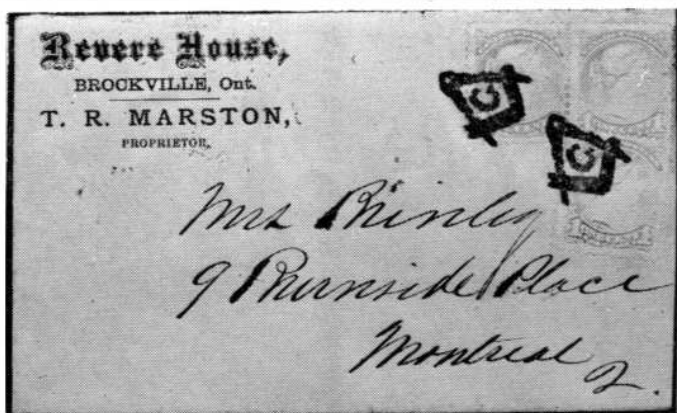 Revere House,
BROCKVILLE, Ont.
T. R. MARSTON,
PROPRIETOR,
G
G
Mrs
9 Burnside Place
Montreal
Q.